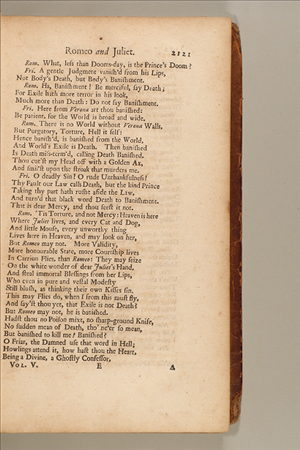 Romeo and Juliet. 2121
Rom. What, less than Dooms-day, is the Prince's Doom?
Fri. A gentle Judgment vanish'd from his Lips,
Not Body's Death, but Body's Banishment.
Rom. Ha, Banishment! Be merciful, say Death;
For Exile hath more terror in his look,
Much more than Death: Do not say Banishment.
Fri. Here from Verona art thou banished:
Be patient, for the World is broad and wide.
Rom. There is no World without Verona Walls,
But Purgatory, Torture, Hell it self:
Hence banish'd, is banished from the World,
And World's Exile is Death. Then banished
Is Death mis-term'd, calling Death Banished.
Thou cut'st my Head off with a Golden Ax,
And smil'st upon the stroak that murders me.
Fri. O deadly Sin! O rude Unthankfulness!
Thy Fault our Law calls Death, but the kind Prince
Taking thy part hath rusht aside the Law,
And turn'd that black word Death to Banishment.
That is dear Mercy, and thou seest it not.
Rom. 'Tis Torture, and not Mercy: Heaven is here
Where Juliet lives, and every Cat and Dog,
And little Mouse, every unworthy thing
Lives here in Heaven, and may look on her,
But Romeo may not. More Validity,
More honourable State, more Courtship lives
In Carrion Flies, than Romeo: They may seize
On the white wonder of dear Juliet's Hand,
And steal immortal Blessings from her Lips,
Who even in pure and vestal Modesty
Still blush, as thinking their own Kisses sin.
This may Flies do, when I from this must fly,
And say'st thou yet, that Exile is not Death?
But Romeo may not, he is banished.
Hadst thou no Poison mixt, no sharp-ground Knife,
No sudden mean of Death, tho' ne'er so mean,
But banished to kill me? Banished?
O Friar, the Damned use that word in Hell;
Howlings attend it, how hast thou the Heart,
Being a Divine, a Ghostly Confessor,
VOL. V. E A